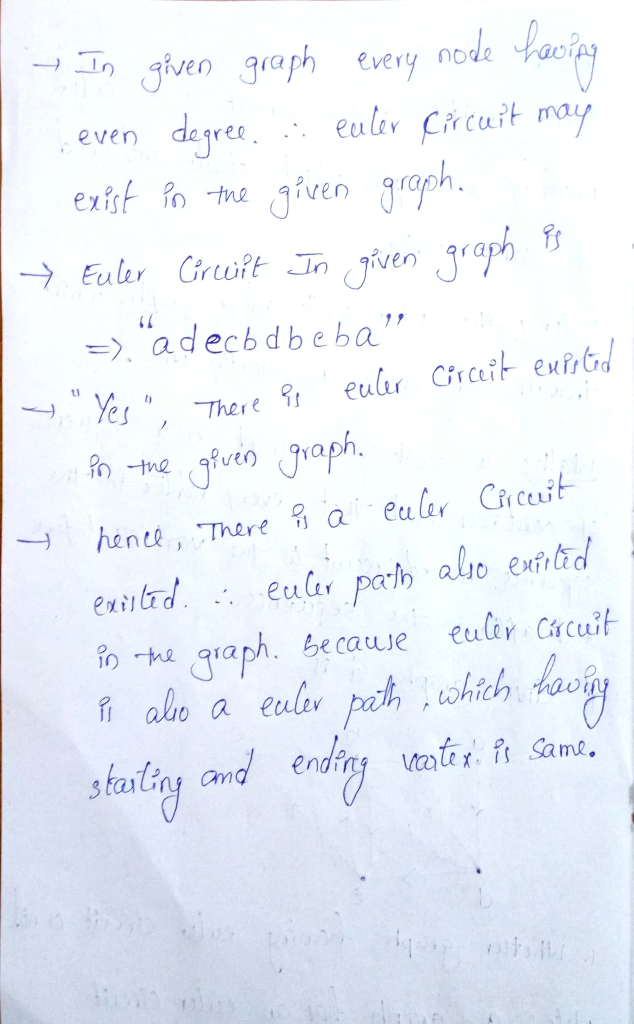 → In given graph every node having
even degree. ∴ euler circuit may
exist in the given graph.
→ Euler Circuit In given graph is
=> "adecbdbeba"
→ "Yes", There is euler circuit existed
in the given graph.
→ hence, There is a euler Circuit
existed. ∴ euler path also existed
in the graph. because euler circuit
is also a euler path, which having
starting and ending vartex is same.